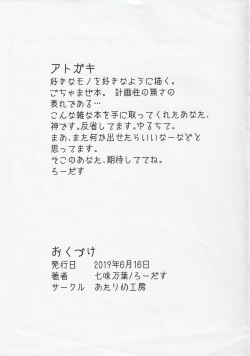 アトガキ
好きなモノを好きなように描く。
ごちゃまぜ本。 計画性の無さの
表れである…
こんな雑な本を手に取ってくれたあなた、
神です。反省してます。ゆるちて。
まあ、また何か出せたらいいなーなどと
思ってます。
そこのあなた、期待しててね。
ろーだす
おくづけ
発行日 2019年6月16日
著者 七味万葉/ろーだす
サークル あたりめ工房